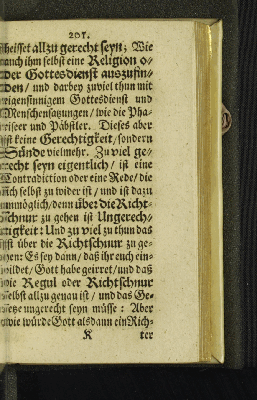 201.
heisset allzu gerecht seyn; Wie
auch ihm selbst eine Religion o-
der Gottesdienst auszufin-
den / und darbey zuviel thun mit
eigensinnigem Gottesdienst und
Menschensatzungen / wie die Pha-
riseer und Päbstler. Dieses aber
ist keine Gerechtigkeit / sondern
Sünde vielmehr. Zu viel ge-
recht seyn eigentlich / ist eine
Contradiction oder eine Rede / die
sich selbst zu wider ist / und ist dazu
unmöglich / denn über die Richt-
schnur zu gehen ist Ungerech-
tigkeit: Und zu viel zu thun das
ist über die Richtschnur zu ge-
hen: Es sey dann / daß ihr euch ein-
bildet / Gott habe geirret / und daß
die Regul oder Richtschnur
selbst allzu genau ist / und das Ge-
setze ungerecht seyn müsse : Aber
wie würde Gott alsdann ein Rich-
K ter